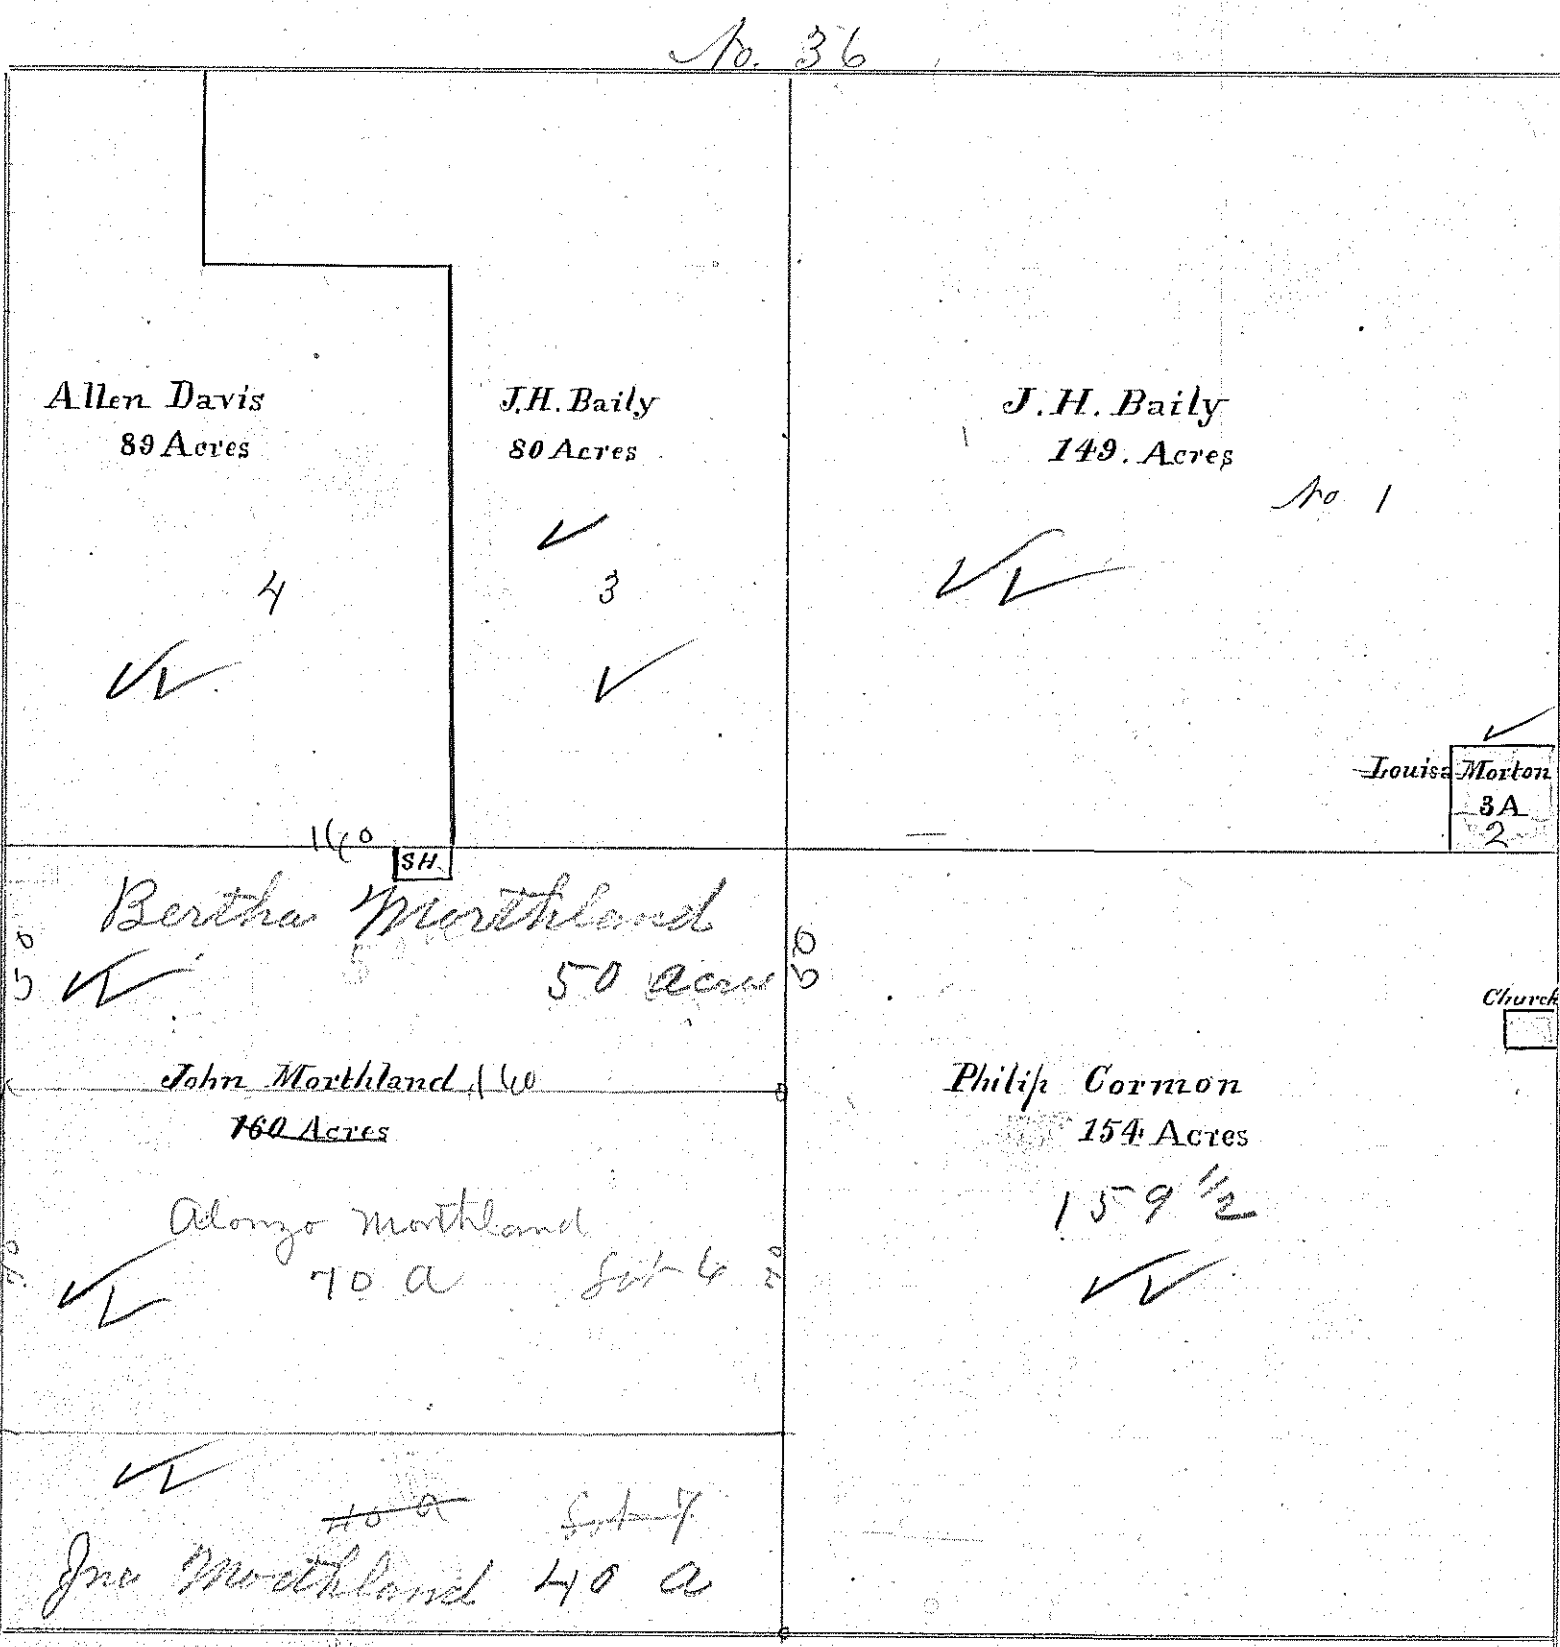 No. 36
Allen Davis
89 Acres
4
J.H. Baily
80 Acres
3
J.H. Baily
149. Acres
No 1
Louisa Morton
3 A
2
160
SH.
Bertha Morthland
50 acres
50
50
Church
John Morthland 160
160 Acres
Philip Cormon
154 Acres
159 1/2
Alonzo Morthland
70 a
70
70
40 a
Jno Morthland 40 a